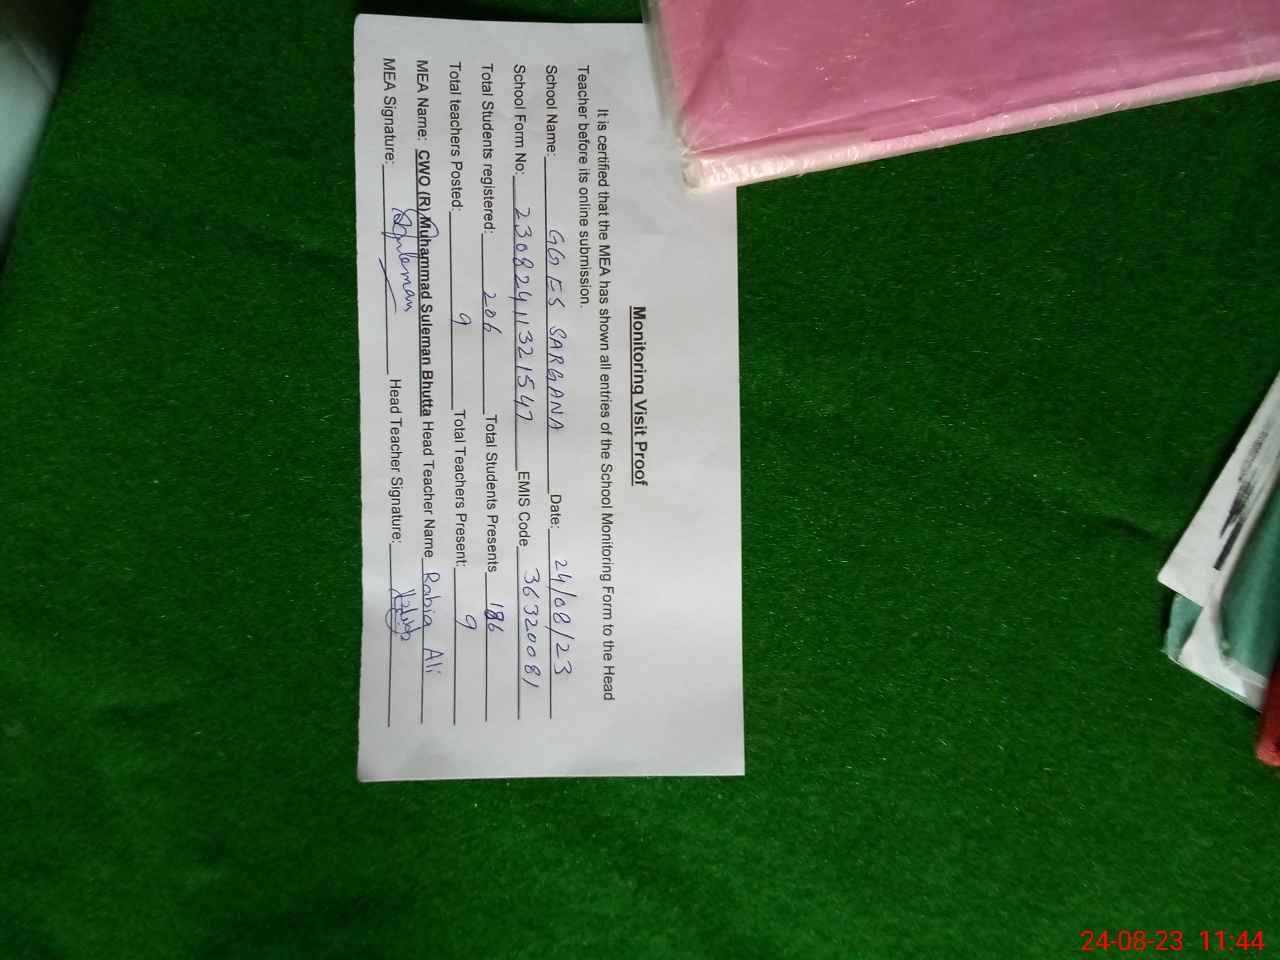 Monitoring Visit Proof
It is certified that the MEA has shown all entries of the School Monitoring Form to the Head
Teacher before its online submission.
School Name: GGES SARGANA Date: 24/08/23
School Form No: 23082411321547 EMIS Code 36320081
Total Students registered: 206 Total Students Presents 186
Total teachers Posted: 9 Total Teachers Present: 9
MEA Name: CWO (R) Muhammad Suleman Bhutta Head Teacher Name Rabia Ali
MEA Signature: Suleman Head Teacher Signature:
24-08-23 11:44